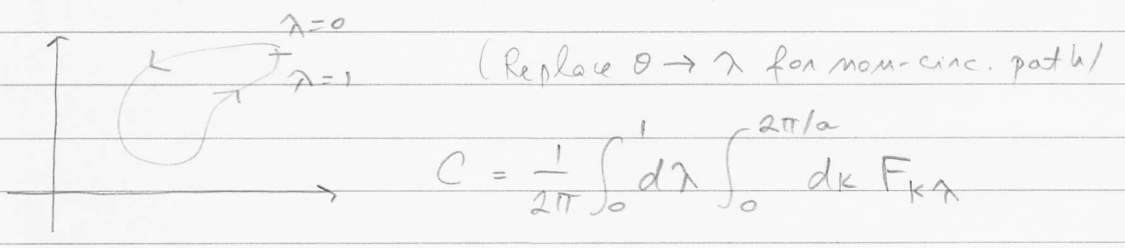 λ=0
λ=1
(Replace θ → λ for non-circ. path)
C = 1/2π ∫₀¹ dλ ∫₀^{2π/a} dk F_{kλ}